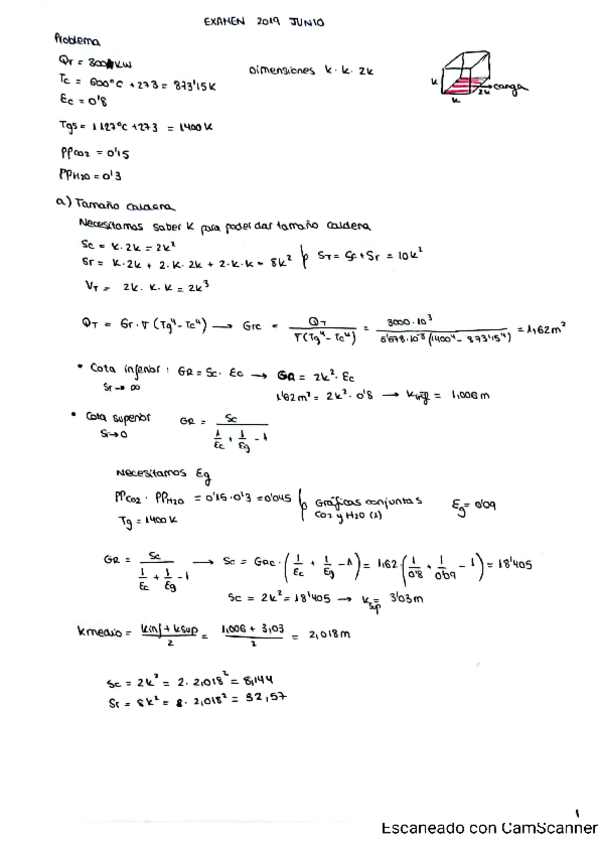 EXAMEN 2019 JUNIO
Problema
Qr = 3000 kW
Tc = 600ºC + 273 = 873'15 K
Dimensiones k · k · 2k
k
k
2k
carga
Ɛc = 0'8
Tgs = 1127ºC + 273 = 1400 K
PPCO2 = 0'15
PPH2O = 0'3
a) Tamaño caldera
Necesitamos saber K para poder dar tamaño caldera
Sc = k · 2k = 2k²
Sr = k·2k + 2·k·2k + 2·k·k = 8k²
ST = Sc + Sr = 10k²
VT = 2k · k · k = 2k³
QT = Gr · σ (Tg⁴ - Tc⁴) → Grc = QT / σ(Tg⁴ - Tc⁴) = 3000 · 10³ / 5'678·10⁻⁸ (1400⁴ - 873'15⁴) = 1,62 m²
• Cota inferior : GR = Sc · Ɛc → GR = 2k² · Ɛc
Sr → ∞
1'62 m² = 2k² · 0'8 → Kinf = 1,006 m
• Cota superior
Sr → 0
GR = Sc / 1/Ɛc + 1/Ɛg - 1
Necesitamos Ɛg
PPCO2 · PPH2O = 0'15 · 0'3 = 0'045
Tg = 1400 K
Gráficas conjuntas
CO2 y H2O (2)
Ɛg = 0'09
GR = Sc / 1/Ɛc + 1/Ɛg - 1 → Sc = GRC · (1/Ɛc + 1/Ɛg - 1) = 1,62 · (1/0'8 + 1/0'09 - 1) = 18'405
Sc = 2k² = 18'405 → Ksup = 3'03 m
Kmedio = kinf + ksup / 2 = 1,006 + 3,03 / 2 = 2,018 m
Sc = 2k² = 2 · 2,018² = 8,144
Sr = 8k² = 8 · 2,018² = 32,57
1
Escaneado con CamScanner